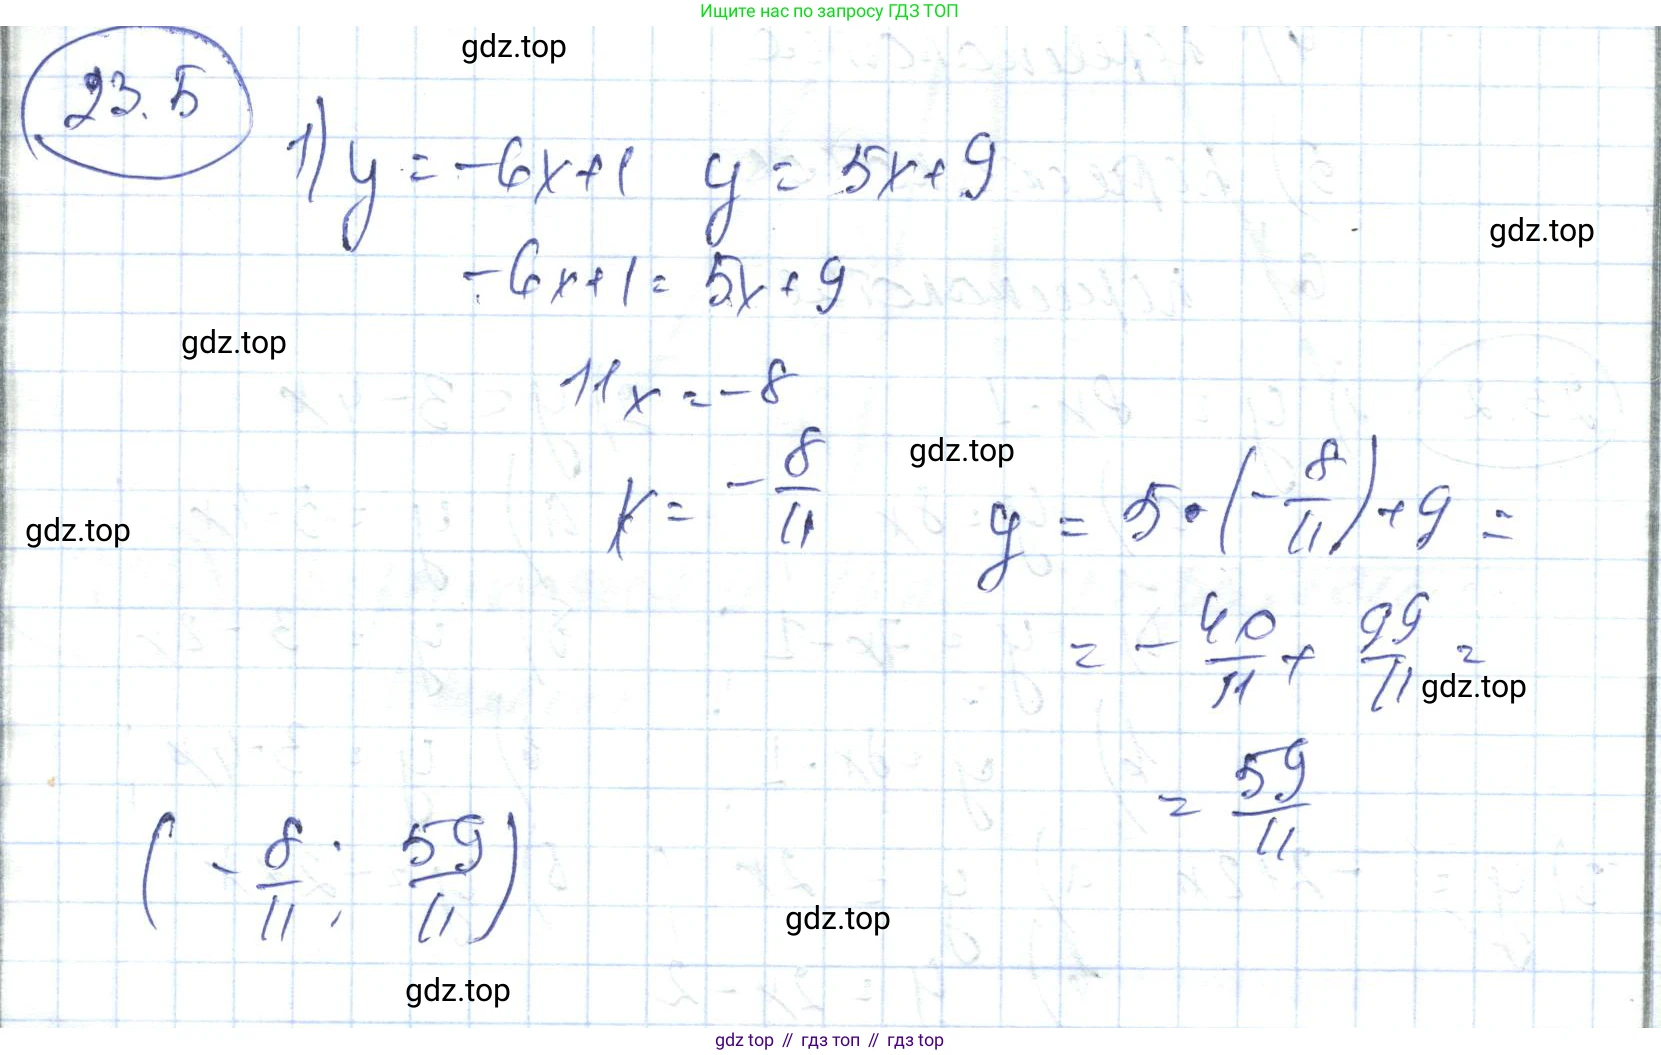 Ищите нас по запросу ГДЗ ТОП
gdz.top
23.5
1) y = -6x+1 y = 5x+9
gdz.top
-6x+1 = 5x+9
gdz.top
11x = -8
gdz.top
x = -8/11 y = 5·(-8/11)+9 =
gdz.top
= -40/11 + 99/11 =
gdz.top
= 59/11
(-8/11; 59/11)
gdz.top
gdz.top
gdz top // гдз топ // гдз top